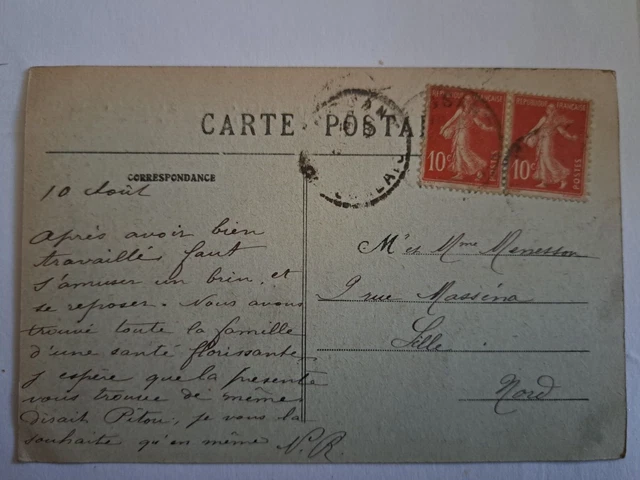 CARTE POSTA
CORRESPONDANCE
10 Août
Après avoir bien
travaillés faut
s'amuser un brin, et
se reposer. Nous avons
trouvé toute la famille
d'une santé florissante,
j espère que la présente
vous trouve de même
disait Pitou, je vous la
souhaite qu'en même N. R.
REPUBLIQUE FRANÇAISE
10c
POSTES
REPUBLIQUE FRANÇAISE
10c
POSTES
CALAIS
M' et Mme Meresson
9 rue Masséna
Lille
Nord